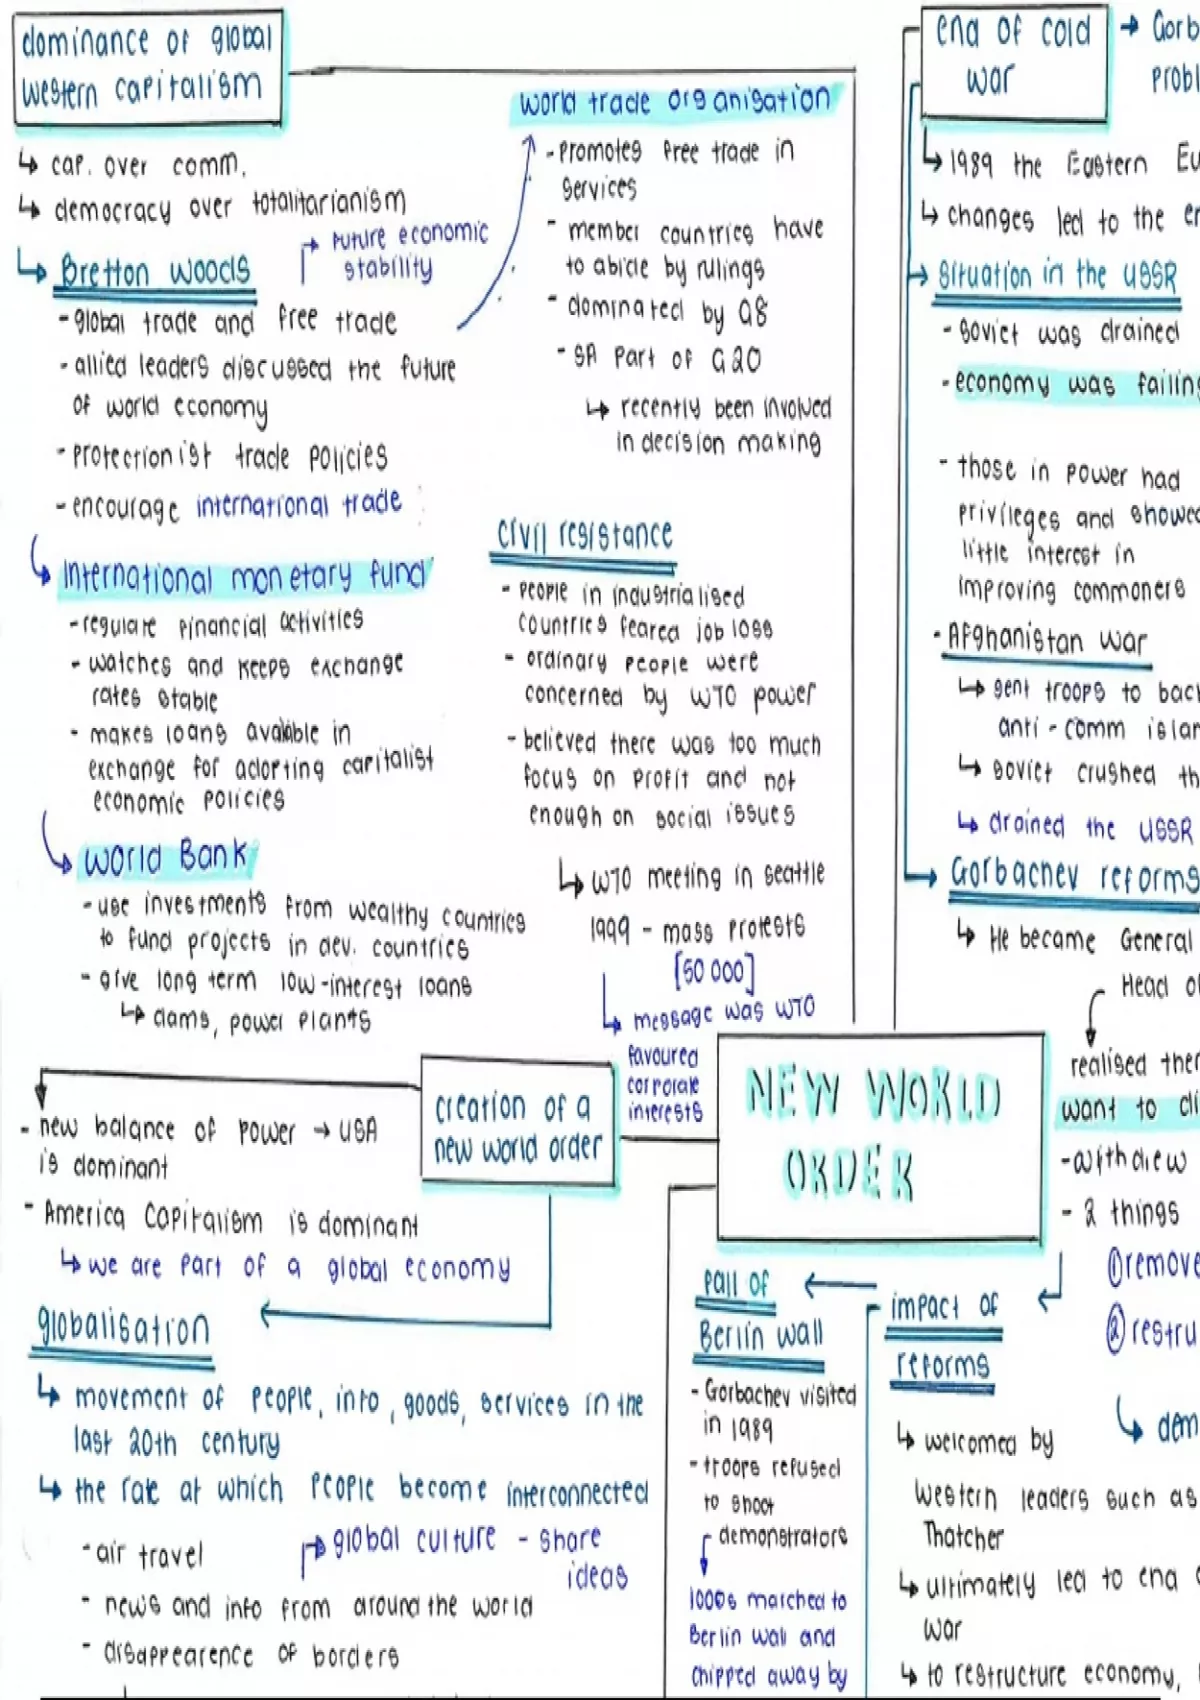 dominance of global
western capitalism
↳ cap. over comm.
↳ democracy over totalitarianism
↳ Bretton woods
→ future economic
stability
- global trade and free trade
- allied leaders discussed the future
of world economy
- protectionist trade policies
- encourage international trade
↳ International monetary fund
- regulate financial activities
- watches and keeps exchange
rates stable
- makes loans available in
exchange for adopting capitalist
economic policies
↳ World Bank
- use investments from wealthy countries
to fund projects in dev. countries
- give long term low-interest loans
↳ dams, power plants
world trade organisation
- promotes free trade in
services
- member countries have
to abide by rulings
- dominated by G8
- SA part of G20
↳ recently been involved
in decision making
civil resistance
- people in industrialised
countries feared job loss
- ordinary people were
concerned by WTO power
- believed there was too much
focus on profit and not
enough on social issues
↳ WTO meeting in seattle
1999 - mass protests
[50 000]
↳ message was WTO
favoured
corporate
interests
NEW WORLD
ORDER
creation of a
new world order
- new balance of power → USA
is dominant
- America Capitalism is dominant
↳ we are part of a global economy
globalisation
↳ movement of people, info, goods, services in the
last 20th century
↳ the rate at which people become interconnected
- air travel
→ global culture - share
ideas
- news and info from around the world
- disappearence of borders
end of cold
war
→ Gorb
probl
↳ 1989 the Eastern Eu
↳ changes led to the en
→ Situation in the USSR
- Soviet was drained
- economy was failing
- those in power had
privileges and showed
little interest in
improving commoners
- Afghanistan war
↳ sent troops to back
anti - comm islam
↳ soviet crushed th
↳ drained the USSR
→ Gorbachev reforms
↳ He became General
Head of
realised ther
want to di
- withdrew
- 2 things
① remove
② restru
↳ dem
impact of
reforms
↳ welcomed by
western leaders such as
Thatcher
↳ ultimately led to end o
war
↳ to restructure economy,
fall of
Berlin wall
- Gorbachev visited
in 1989
- troops refused
to shoot
demonstrators
1000s marched to
Berlin wall and
chipped away by